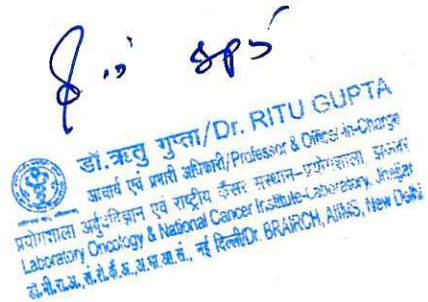 डॉ.ऋतु गुप्ता/Dr. RITU GUPTA
आचार्य एवं प्रभारी अधिकारी/Professor & Officer-in-Charge
प्रयोगशाला अर्बुदविज्ञान एवं राष्ट्रीय कैंसर संस्थान-प्रयोगशाला, झज्जर
Laboratory Oncology & National Cancer Institute-Laboratory, Jhajjar
नई दिल्ली/Dr. BRAIRCH, AIIMS, New Delhi